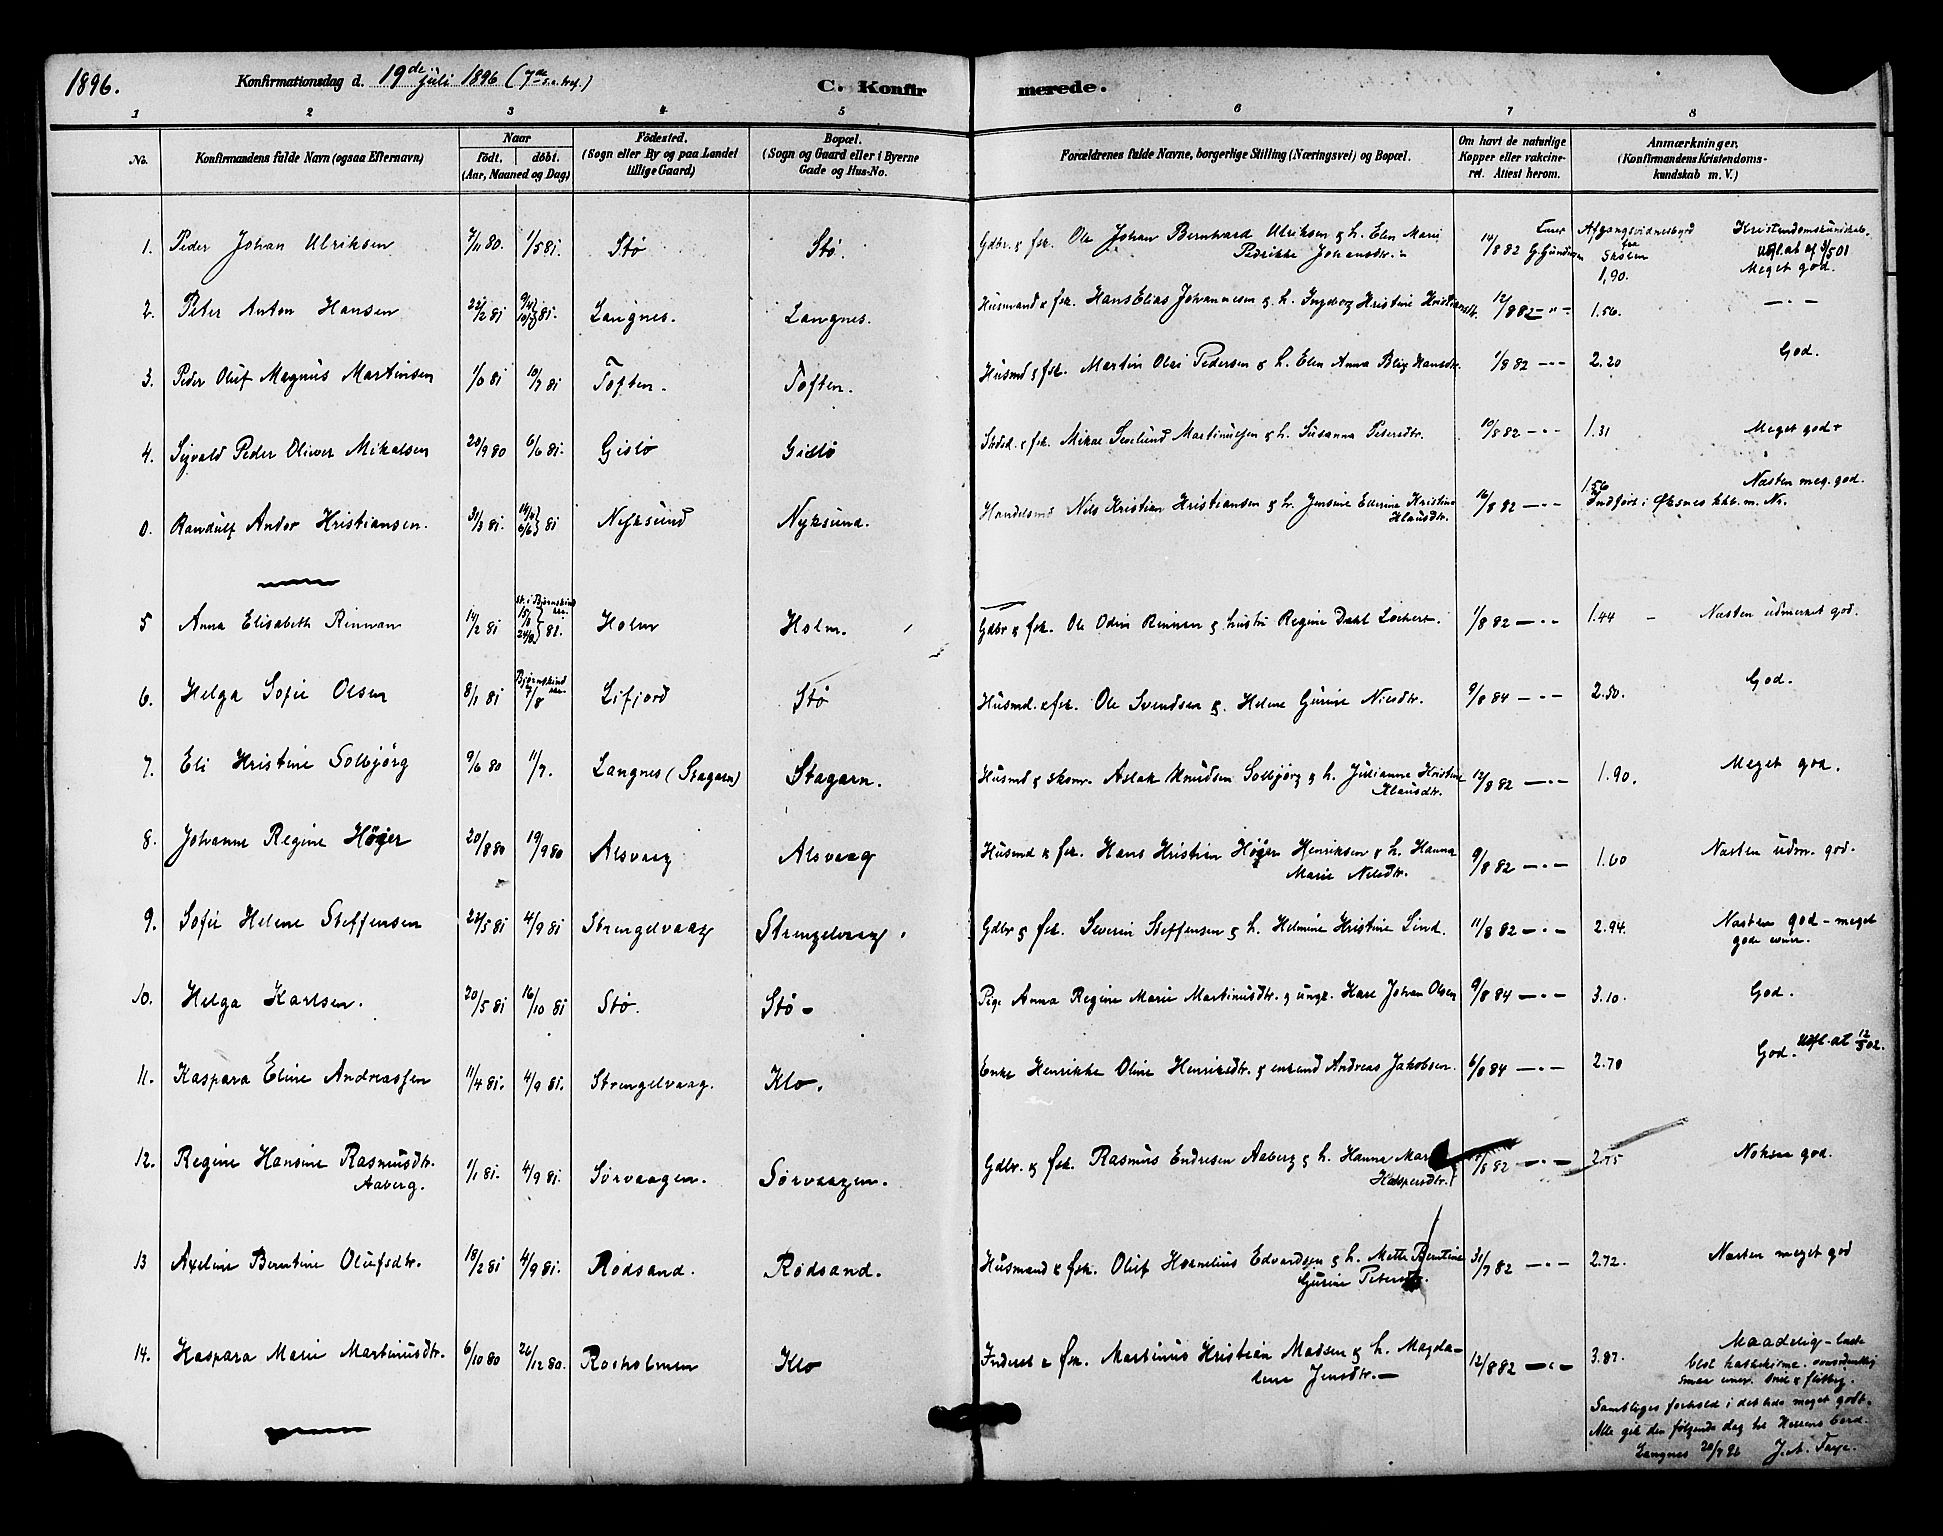 1896.
Konfirmationsdag d. 19de juli 1896 (7de s. e. tref.)
C. Konfirmerede.
1 2 3 4 5 6 7 8
No.
Konfirmandens fulde Navn (ogsaa Efternavn)
Naar
født. døbt.
(Aar, Maaned og Dag)
Fødested.
(Sogn eller By og paa Landet
tillige Gaard)
Bopæl.
(Sogn og Gaard eller i Byerne
Gade og Hus-No.
Forældrenes fulde Navne, borgerlige Stilling (Næringsvei) og Bopæl.
Om havt de naturlige
Kopper eller vakcine-
ret. Attest herom.
Anmærkninger.
(Konfirmandens Kristendoms-
kundskab m. V.)
1. Peder Johan Ulriksen 7/11 80. 1/5 81. Stø Stø. Gdbr. & fsk. Ole Johan Bernhard Ulriksen & h. Elen Marie
Pedrikke Johansdtr. 14/8 82 Afgangsvidnesbyrd fra Skolen 1,90. Kristendomskundskab.
Udfl.at. af 3/5 01
Meget god.
2. Peter Anton Hansen 22/2 81 9/4 10/7 81. Langnes. Langnes. Husmand & fsk. Hans Elias Johannesen & h. Ingeborg Kristine Kristiansdtr. 12/8 82 – " – 1.56. – · –
3. Peder Oluf Magnus Martinsen 1/6 81 10/7 81 Toften. Toften. Husmd & fsk. Martin Olai Pedersen & h. Elen Anna Blix Hansdtr. 1/8 82 – · – 2.20 God.
4. Sigvald Peder Oliver Mikalsen 20/9 80 6/6 81. Gislø Gislø & fsk. Mikal Martinussen & h. Susanna Petersdtr. 10/8 82 – · – 1.31 Meget god +
0. Randulf Andor Kristiansen. 31/3 81. 14/4 6/6 81 Nyksund Nyksund. Handelsmd Nils Kristian Kristiansen & h. Jensine Ellerine Kristine
Klausdtr. 16/8 82 – · – 1.56 Næsten meg. god.
Indført i Øksnes kkb. m. No.
5 Anna Elisabeth Rinnan 14/2 81 St. i Bjørnskind 15/3 24/8 81. Holm Holm. Gdbr & fsk. Ole Odin Rinnan & hustru Regine Dahl Lockert. 1/8 82 – · – 1.44 – Næsten udmerket god.
6. Helga Sofie Olsen 8/1 81 Bjørnskind 7/8 Lifjord Stø Husmd. & fsk. Ole Svendsen & Helene Gurine Nilsdtr. 9/8 84 – · – 2.50. God.
7. Eli Kristine Solbjørg 9/6 80 11/7. Langnes (Stagarn) Stagarn. Husmd & skom. Aslak Knudsen Solbjørg & h. Julianna Kristine
Klausdtr. 12/8 82 – · – 1.90. Meget god.
8. Johanne Regine Høger 20/8 80 19/9 80 Alsvaag Alsvaag Husmd & fsk. Hans Kristian Høger Henriksen & h. Hanna
Marie Nilsdtr. 9/8 82 – · – 1.60 Næsten udm. god.
9. Sofie Helene Steffensen 22/5 81 4/9 81 Strengelvaag Strengelvaag. Gdbr & fsk. Severin Steffensen & h. Helmine Kristine Lind. 11/8 82 – · – 2.94. Næsten god – meget
gode evner.
10. Helga Karlsen. 20/5 81 16/10 81 Stø. Stø – Pige Anna Regine Marie Martinusdtr. & ungk. Karl Johan Olsen 9/8 84 – · – 3.10. God.
11. Kaspara Eline Andreassen 11/4 81. 4/9 81. Strengelvaag. Klo. Enke Henrikke Oline Henriksdtr. & enkmd Andreas Jakobsen. 6/8 84 – · – 2.70 God. Udfl.at 12/5 02.
12. Regine Hansine Rasmusdtr.
Aaberg. 1/1 81. 4/9 81. Sørvaagen. Sørvaagen. Gdbr. & fsk. Rasmus Endresen Aaberg & h. Hanna
Kaspersdtr. 1/8 82 – · – 2.75 Noksaa god.
13 Axeline Berntine Olufsdtr. 18/2 81 4/9 81. Rødsand. Rødsand. Husmand & fsk. Oluf Kornelius Edvardsen & h. Mette Berntine
Gurine Petersdtr. 31/7 82 – · – 2.72. Næsten meget god
14. Kaspara Marie Martinusdtr. 6/10 80 26/12 80. Rosholmen Klo Inderst & fsk. Martinus Kristian Madsen & h. Magda-
lene Jensdtr. – 12/8 82 – · – 3.87. Maadelig –
smaa evner. & flittig.
Samtliges forhold i det hele meget godt.
Alle gik den følgende dag til Herrens bord.
Langnes 20/7 96 J. A. Faye.